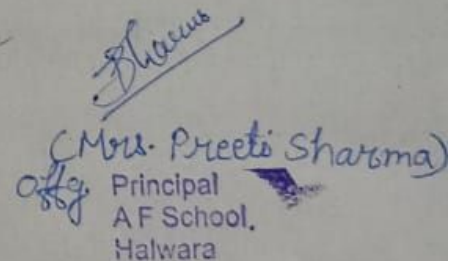 Sharma
(Mrs. Preeti Sharma)
Offg. Principal
A F School,
Halwara